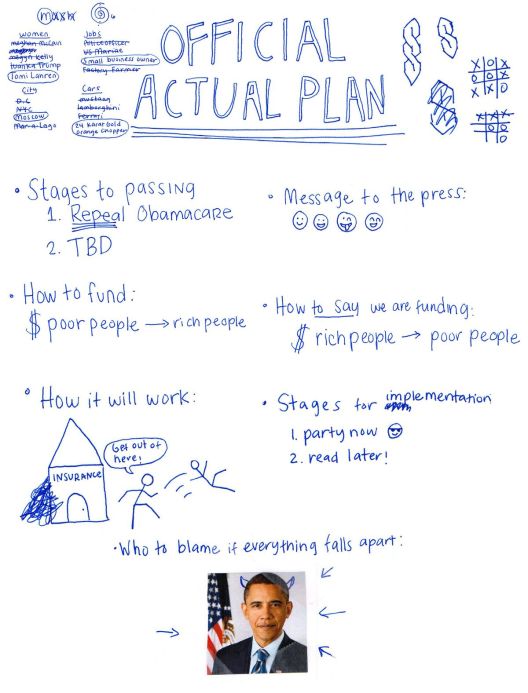 mash 6
women
meghan mcCain
megyn kelly
Ivanka Trump
Tomi Lahren
City
D.C
NYC
Moscow
Mar-a-Lago
Jobs
Police officer
US Marine
Small business owner
Factory Farmer
Cars
mustang
lamborghini
Ferrari
24 karat gold
orange chopper
OFFICIAL
ACTUAL PLAN
X O X
O O X
X X O
X X X
O O
O
• Stages to passing
1. Repeal Obamacare
2. TBD
• Message to the press:
• How to fund:
$ poor people → rich people
• How to say we are funding:
$ rich people → poor people
• How it will work:
Get out of
here!
INSURANCE
• Stages for implementation
1. party now
2. read later!
• Who to blame if everything falls apart: